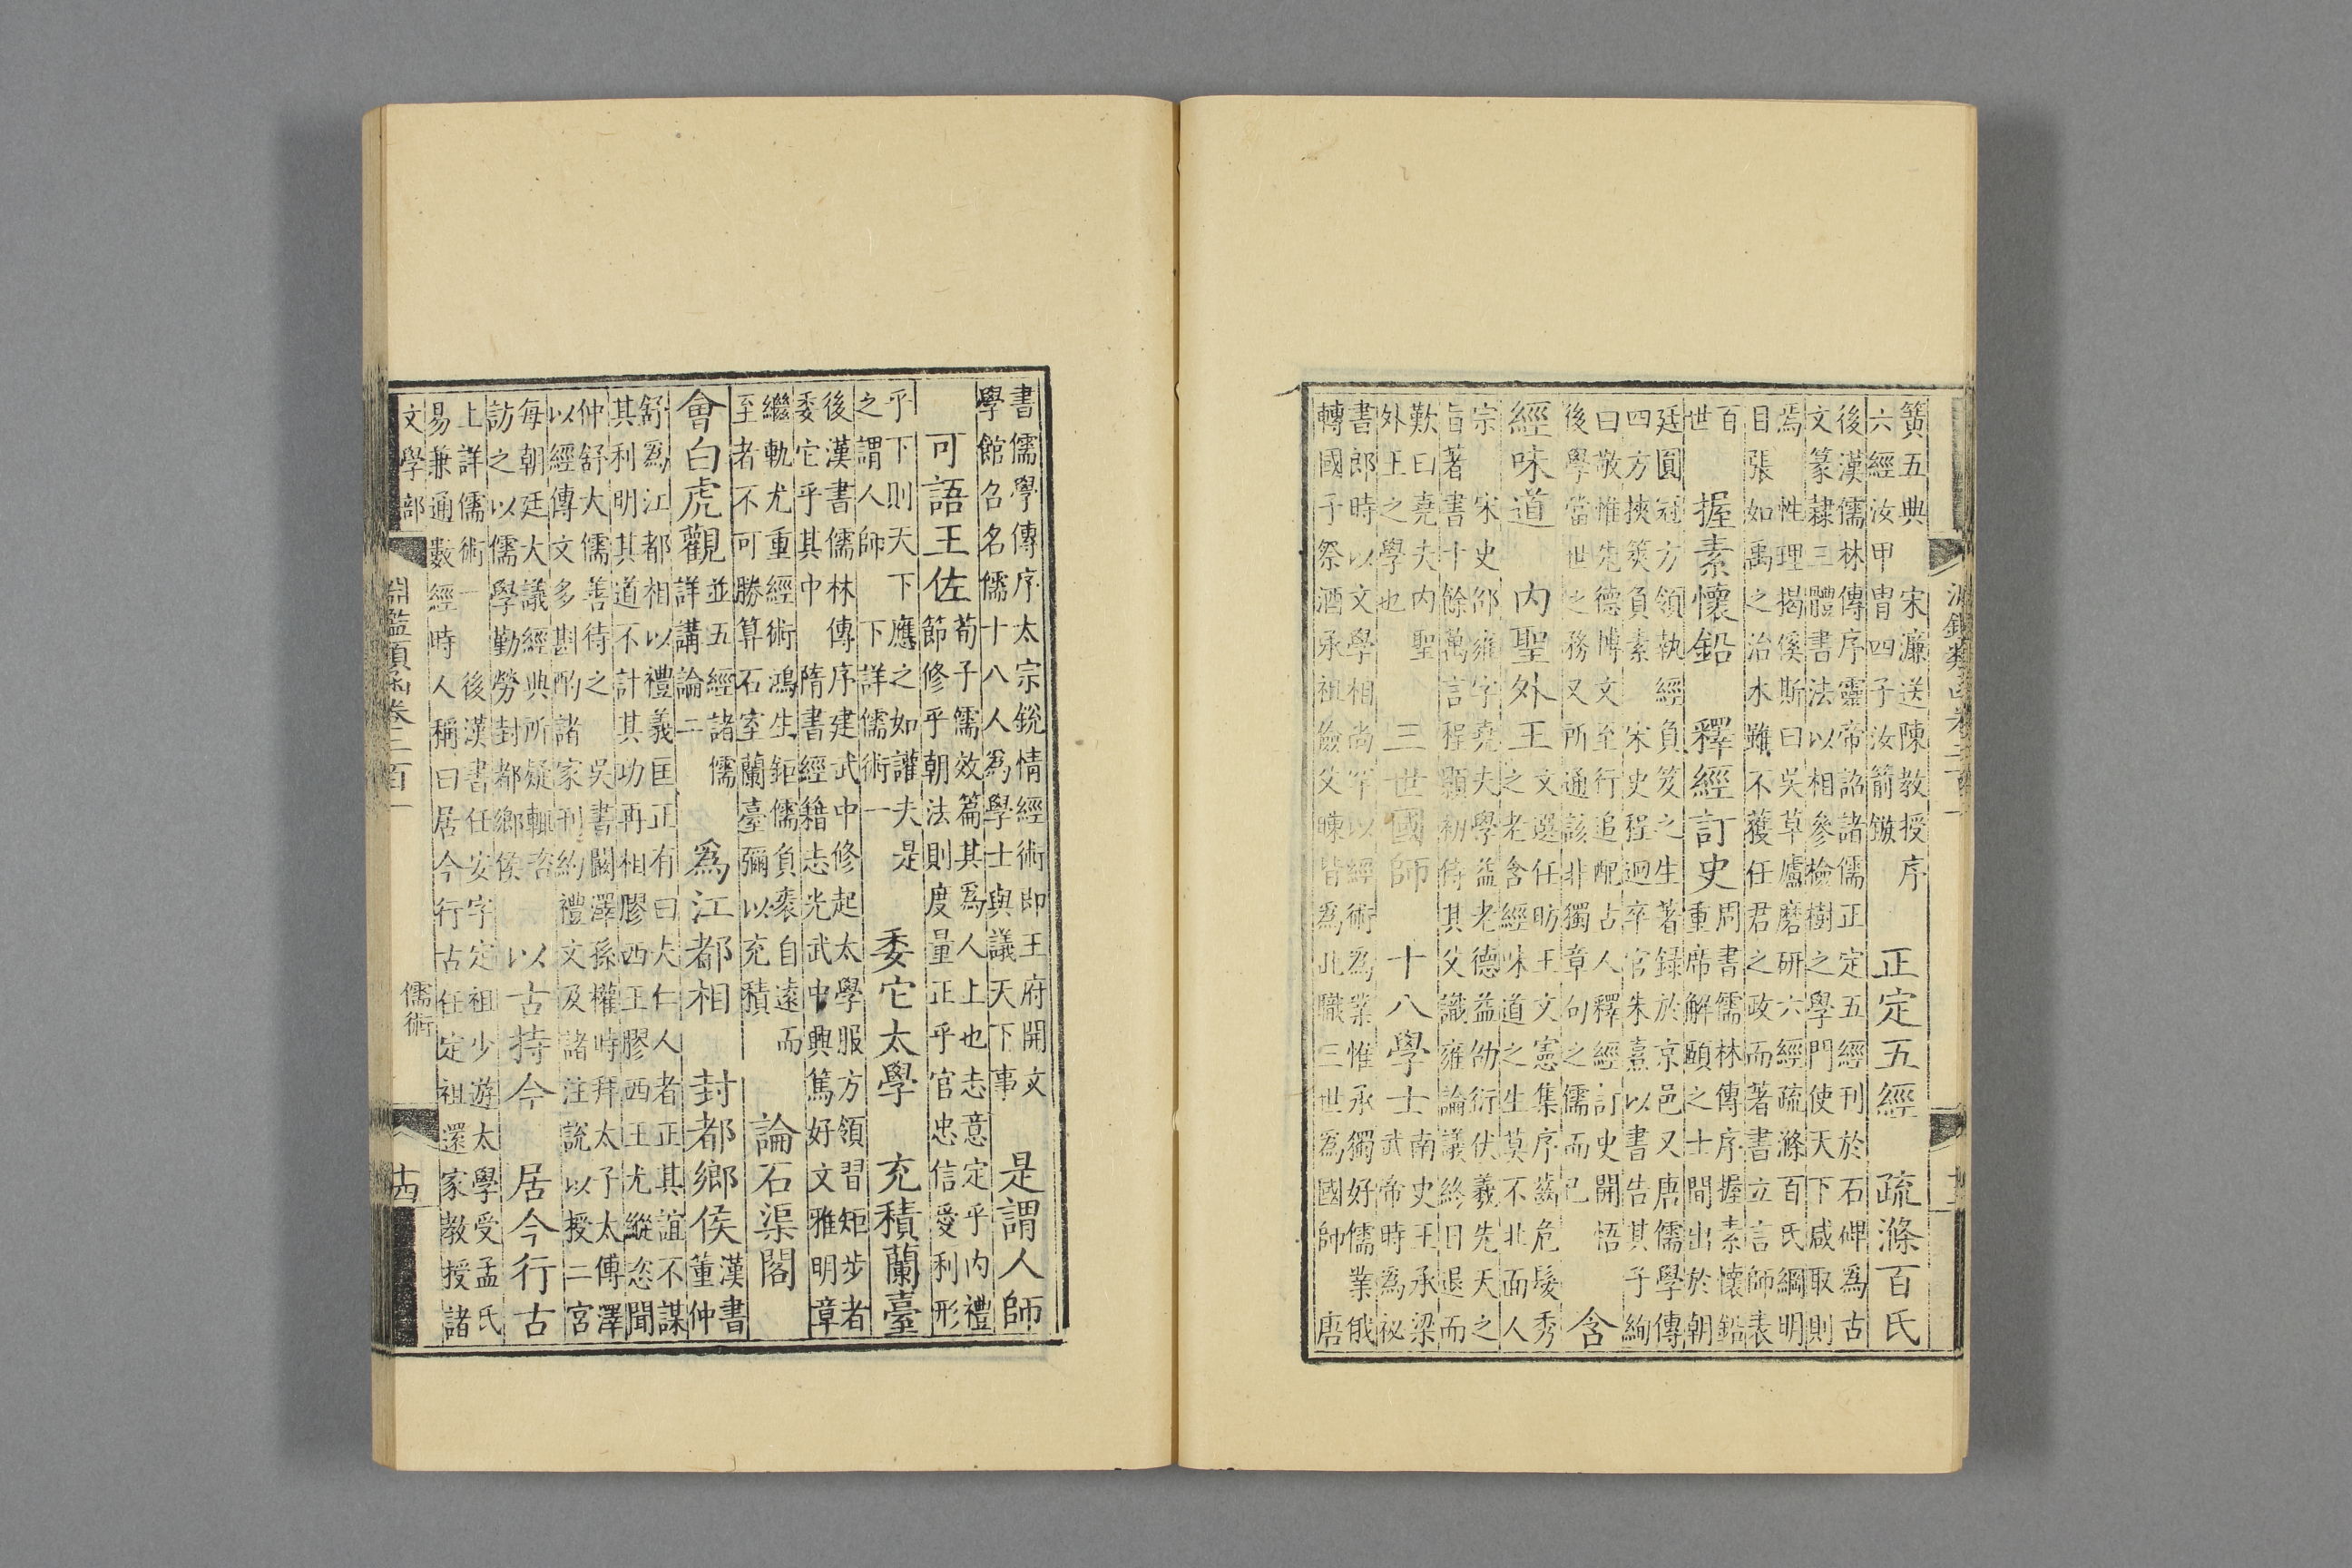 簧五典宋濂送陳教授序
六經汝甲冑四子汝箭鏃
正定五經
疏滌百氏
後漢儒林傳序靈帝詔諸儒正定五經刊於石碑爲古
文篆隸三體書法以相參檢樹之學門使天下咸取則
焉性理揭傒斯曰吳草廬磨研六經疏滌百氏綱明
目張如禹之治水雖不獲任君之政而著書立言師表
百
世
握素懷鉛
釋經訂史
周書儒林傳序握素懷鉛
重席解頤之士間出於朝
廷圓冠方領執經負笈之生著録於京邑又唐儒學傳
四方挾筴負素
宋史程迥卒官朱熹以書告其子絢
曰敬惟先德博文至行追配古人釋經訂史開悟
後學當世之務又所通該非獨章句之儒而已
含
經味道
內聖外王
文選任昉王文憲集序齒危髮秀
之老含經味道之生莫不北面人
宗
宋史邵雍字堯夫學益老德益劭衍伏羲先天之
旨著書十餘萬言程顥初侍其父識雍論議終日退而
歎曰堯夫內聖
外王之學也
三世國師
十八學士
南史王承梁
武帝時爲祕
書郎時以文學相尚罕以經術爲業惟承獨好儒業俄
轉國子祭酒承祖儉父暕皆爲此職三世爲國師
唐
書儒學傳序太宗銳情經術即王府開文
學館召名儒十八人爲學士與議天下事
是謂人師
可語王佐
荀子儒效篇其爲人上也志意定乎內禮
節修乎朝法則度量正乎官忠信愛利形
乎下則天下應之如讙夫是
之謂人師
下詳儒術一
委它太學
充積蘭臺
後漢書儒林傳序建武中修起太學服方領習矩步者
委它乎其中
隋書經籍志光武中興篤好文雅明章
繼軌尤重經術鴻生鉅儒負袠自遠而
至者不可勝算石室蘭臺彌以充積
論石渠閣
會白虎觀
並五經諸儒
詳講論二
爲江都相
封都鄉侯
漢書
董仲
舒爲江都相以禮義匡正有曰夫仁人者正其誼不謀
其利明其道不計其功再相膠西王膠西王尤縱恣聞
仲舒大儒善待之
吳書闞澤孫權時拜太子太傅澤
以經傳文多斟酌諸家刊約禮文及諸注說以授二宮
每朝廷大議經典所疑輒咨
訪之以儒學勤勞封都鄉侯
以古持今
居今行古
上詳儒術一
後漢書任安字定祖少遊太學受孟氏
易兼通數經時人稱曰居今行古任定祖還家教授諸
文學部
淵鑑類函卷二百一
儒術
十四